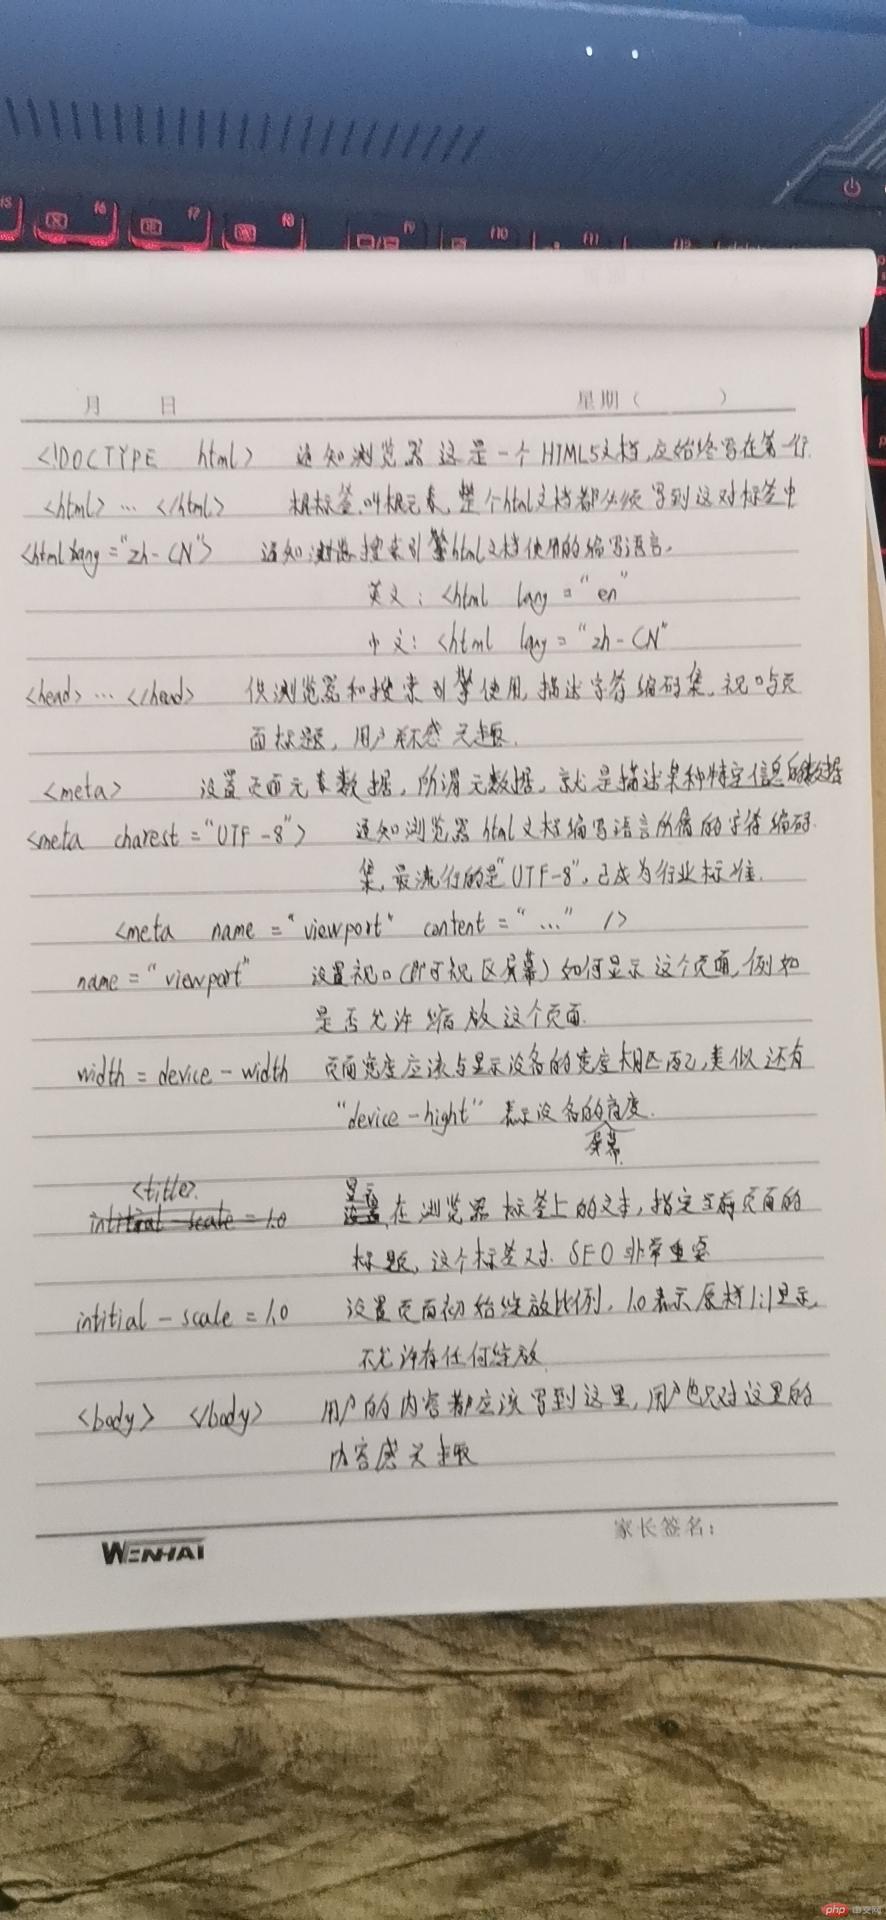 f6 f7 f8 f9 f10 f11
月 日 星期（ ）
<!DOCTYPE html> 通知浏览器这是一个HTML5文档,应始终写在第一行.
<html> … </html> 根标签,叫根元素,整个html文档都必须写到这对标签中
<html lang="zh-CN"> 通知浏览搜索引擎html文档使用的编写语言.
英文：<html lang="en"
中文：<html lang="zh-CN"
<head> … </head> 供浏览器和搜索引擎使用,描述字符编码集,视口与页
面标题，用户并不感兴趣.
<meta> 设置页面元素数据，所谓元数据，就是描述某种特定信息的数据
<meta charest="UTF-8"> 通知浏览器html文档编写语言所借的字符编码
集,最流行的是"UTF-8",已成为行业标准.
<meta name="viewport" content="…" />
name="viewport" 设置视口(即可视区屏幕)如何显示这个页面,例如
是否允许缩放这个页面.
width=device-width 页面宽度应该与显示设备的宽度相匹配,类似还有
"device-hight" 表示设备的高度.
屏幕
<title>
intitial-scale=1.0 显示在浏览器标签上的文本,指定当前页面的
标题,这个标签对SEO非常重要
intitial-scale=1.0 设置页面初始缩放比例,1.0表示原样1:1显示,
不允许存任何缩放
<body> </body> 用户的内容都应该写到这里,用户也只对这里的
内容感兴趣
家长签名：
WENHAI
php 中文网